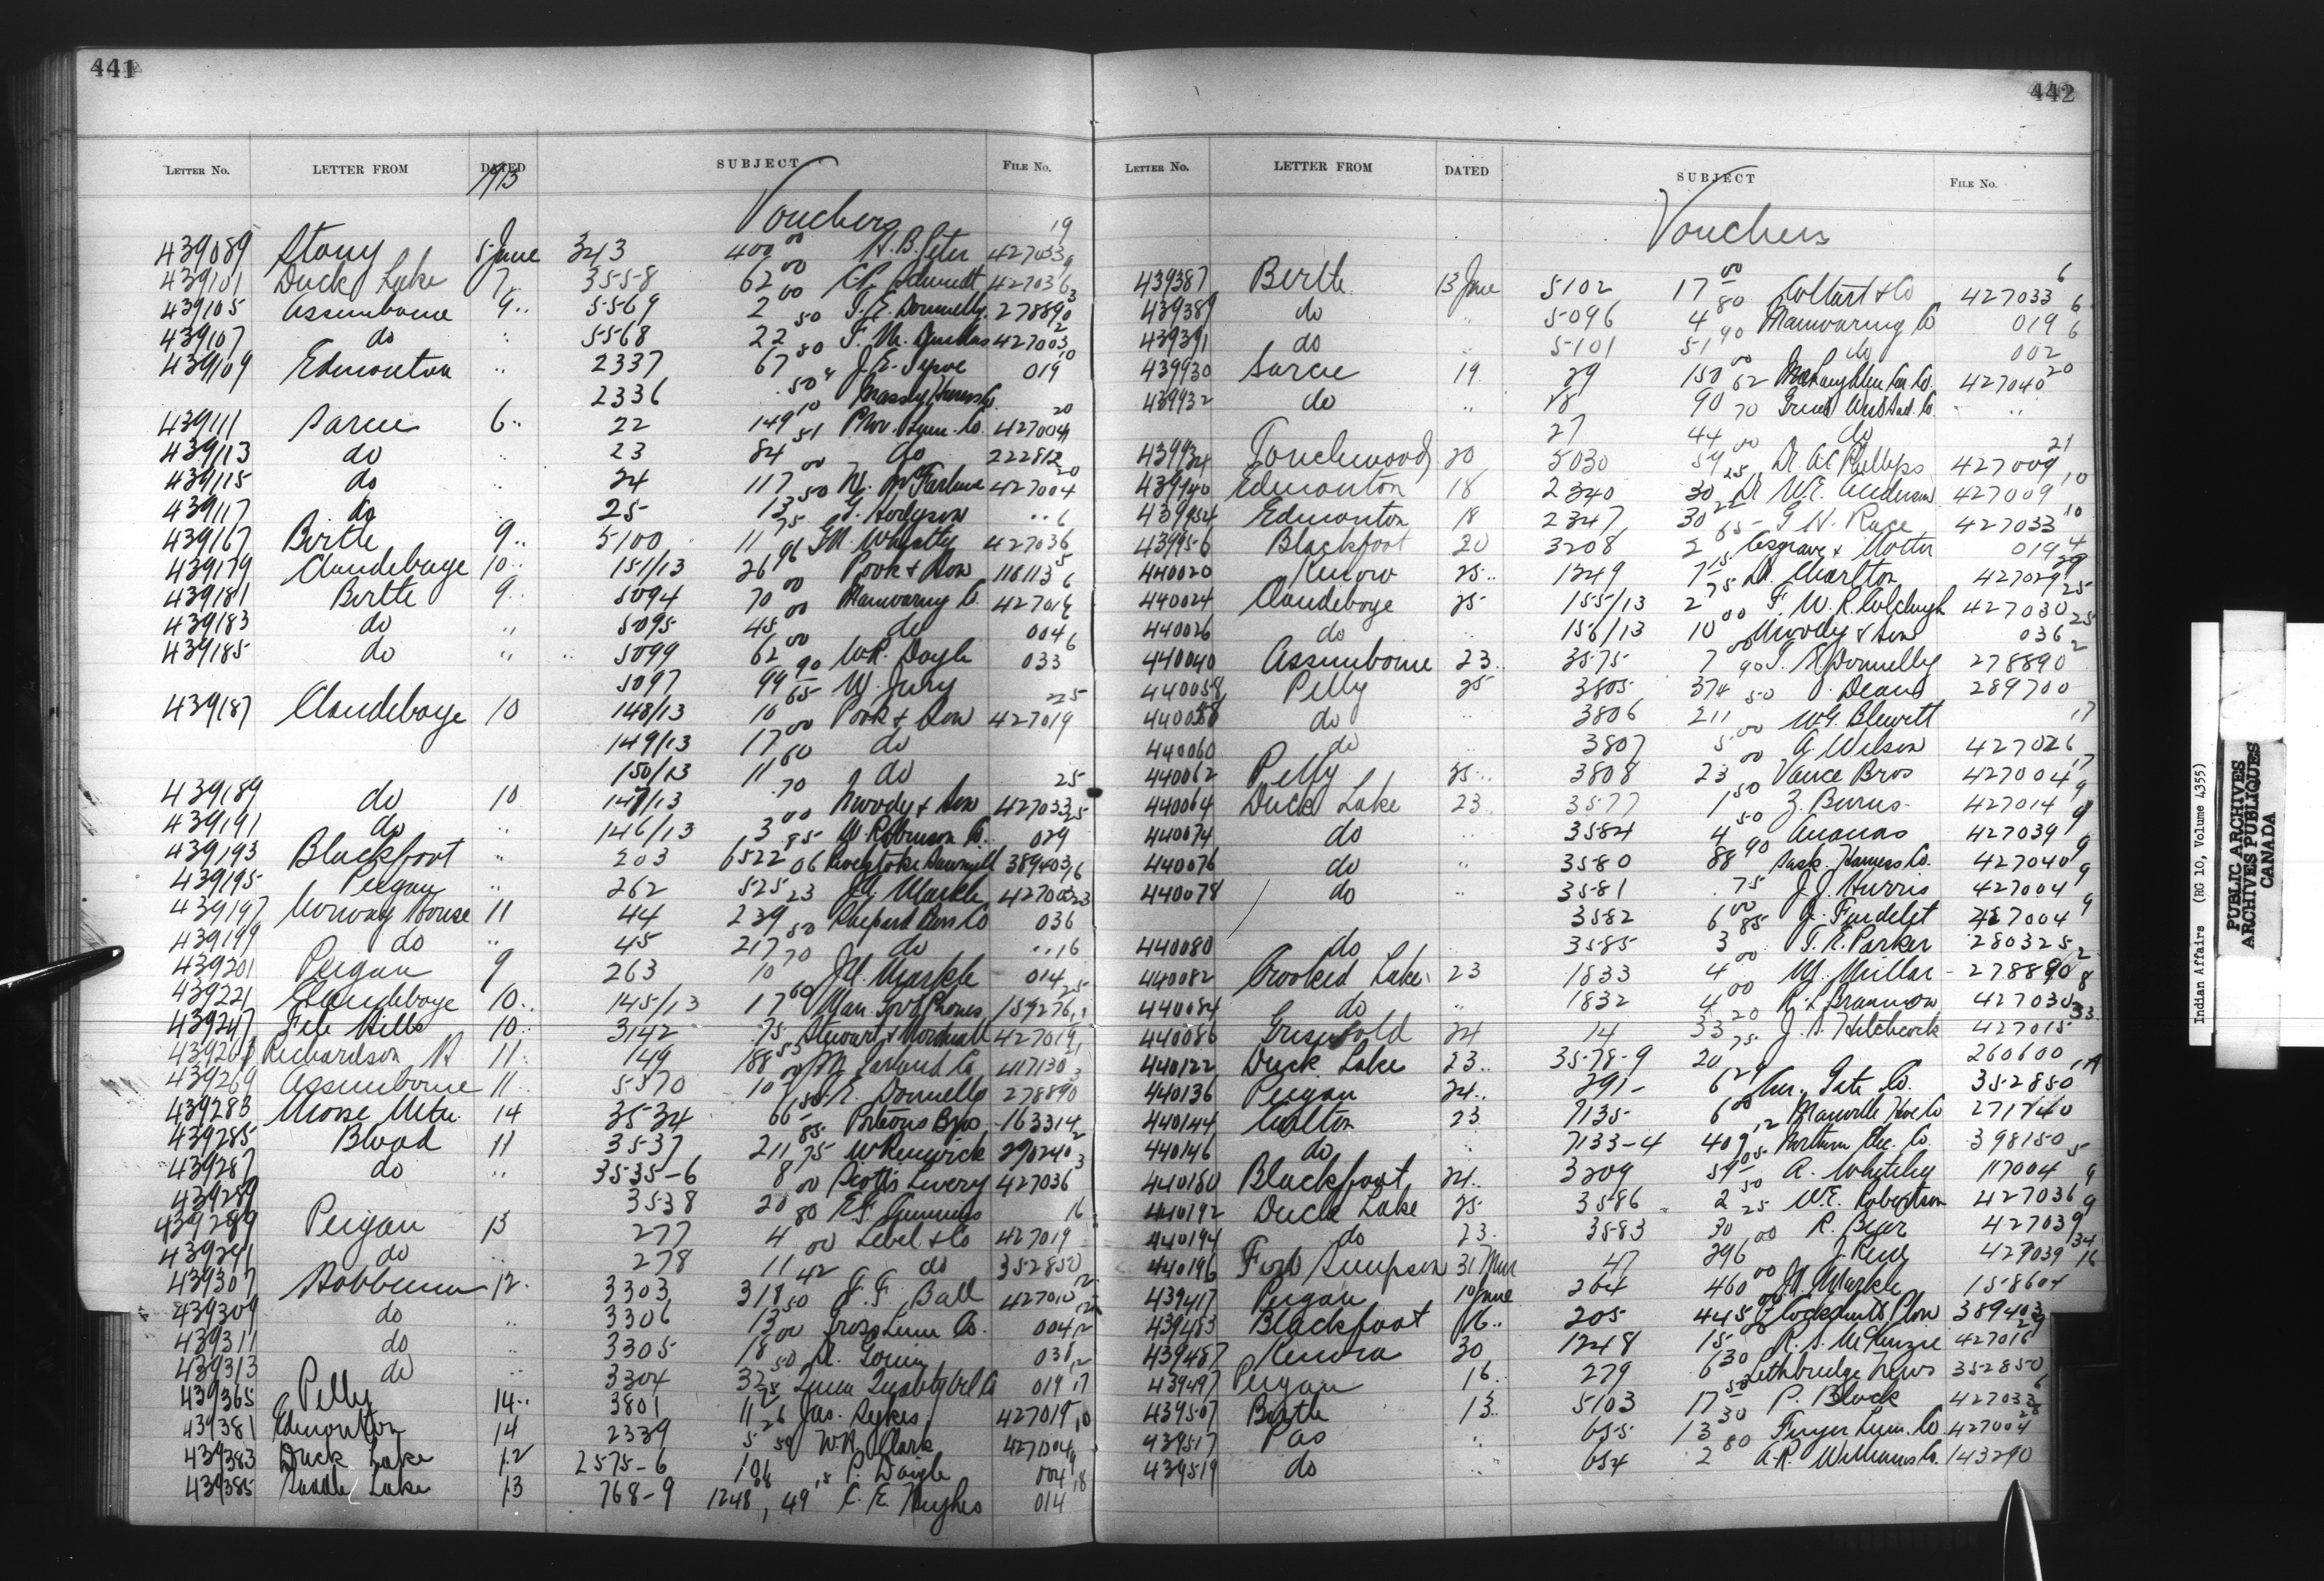 441
LETTER No. LETTER FROM DATED SUBJECT FILE No.
1913
Vouchers
439089 Stony 5 June 343 400 00 H.B. Peter 427033 19
439101 Duck Lake 7 " 3558 62 00 427036 9
439105 Assiniboine 9 " 5569 2 00 T.E. Donnelly 278890 3
439107 do " 5568 22 50 427003 2
439109 Edmonton " 2337 67 80 019 10
2336 50
439111 Sarcee 6 " 22 149 10 Prov. Lum. Co. 427004 20
439113 do " 23 84 51 do 222812
439115 do " 24 117 00 427004 20
439117 do " 25 13 50 G. Hodgson " "
439167 Birtle 9 " 5100 11 75 427036 6
439179 Clandeboye 10 " 151/13 26 96 Pook & Son 118113 5
439181 Birtle 9 " 5094 70 00 Manwaring Co. 427016 6
439183 do " 5095 45 00 do 004
439185 do " 5099 62 00 W.R. Doyle 033 6
5097 99 90 W. Jury
439187 Clandeboye 10 148/13 10 65 Pook & Son 427019 25
149/13 17 00 do
150/13 11 60 do
439189 do 10 147/13 70 Moody & Son 427033 25
439191 do " 146/13 3 00 W. Robinson Co. 029 25
439193 Blackfoot " 203 6522 85 Revelstoke Sawmill 389403
439195 Peigan " 262 525 06 J.H. Markle 427003 16
439197 Norway House 11 44 239 23 Co 036 23
439199 do " 45 217 50 do " "
439201 Peigan 9 263 10 70 J.H. Markle 014 16
439221 Clandeboye 10 " 145/13 17 60 Man. Gov't Phones 159276 25
439247 File Hills 10 " 3142 75 Stewart & 427019 11
Richardson 11 " 149 188 53 417130
439269 Assiniboine 11 " 5570 10 T.E. Donnelly 278890 3
439283 Moose Mtn. 14 3534 66 Bros 163314
439285 Blood 11 3537 211 85 W. Renwick 290240 2
439287 do " 3535-6 8 75 Scott's Livery 427036 3
439289 3538 20 00
439289 Peigan 13 277 4 80 Lebel & Co 427019 16
439291 do " 278 11 00 do 352850
439307 Hobbema 12 " 3303 318 42 F.F. Ball 427010 12
439309 do " 3306 13 50 Lum Co. 004 12
439311 do " 3305 18 00 038 12
439313 do " 3304 32 50 019 12
439365 Pelly 14 " 3801 11 25 Jas. Sykes 427019 17
439381 Edmonton 14 2339 5 26 W.A. Clark 427004 10
439383 Duck Lake 12 2575-6 101 50 P. Daigle 004 9
439385 Saddle Lake 13 768-9 1248 08, 49 15 C.E. Hughes 014 18
442
LETTER No. LETTER FROM DATED SUBJECT FILE No.
Vouchers
439387 Birtle 13 June 5102 17 00 Coltart & Co 427033 6
439389 do " 5096 4 80 Manwaring Co 019 6
439391 do " 5101 51 90 do 002 6
439930 Sarcee 19 29 150 00 McLaughlin Car. Co. 427040 20
439932 do " 18 90 62 Great West Sad. Co. " "
27 44 70 do
439934 Touchwood 20 5030 54 00 Dr. Phillips 427009 21
439940 Edmonton 18 2340 30 25 Dr. W.E. Anderson 427009 10
439954 Edmonton 18 2347 30 22 G.H. Race 427033 10
439956 Blackfoot 20 3208 2 65 Cosgrave & 019 4
440020 Kenora 25 " 1249 7 15 Dr. Charlton 427029 29
440024 Clandeboye 25 155/13 2 75 F.W.R. Colcleugh 427030 25
440026 do " 156/13 10 00 Moody & Son 036 25
440040 Assiniboine 23 " 3575 7 00 T.E. Donnelly 278890 2
440058 Pelly 25 3805 374 90 Deans 289700
440058 do " 3806 211 50 W.G. Blewett
440060 do " 3807 5 00 A. Wilson 427026 17
440062 Pelly 25 " 3808 23 00 Vance Bros 427004 17
440064 Duck Lake 23 3577 1 50 Z. Burns 427014 9
440074 do " 3584 4 50 Ananas 427039 9
440076 do " 3580 88 90 Sask. Harness Co. 427040 9
440078 do " 3581 75 J.J. Harris 427004 9
3582 6 00 427004 9
440080 do 3585 3 85 T.R. Parker 280325
440082 Crooked Lake 23 1833 4 00 W. Millar 278890 2
440084 do " 1832 4 00 427030 8
440086 Griswold 24 14 33 20 J. Hitchcock 427015 33
440122 Duck Lake 23 " 3578-9 20 75 260600
440136 Peigan 24 " 291 6 29 Am. Gate Co. 352850
440144 Carlton 23 7135 6 00 271740
440146 do " 7133-4 409 12 Northern Elec. Co. 398150
440180 Blackfoot 24 " 3209 54 05 A. Whiteley 117004 5
440192 Duck Lake 25 3586 2 50 W.E. Robertson 427036 9
440194 do 23 " 3583 30 25 R. Bear 427039 9
440196 Fort Simpson 31 Mar 47 296 00 427039 34
439417 Peigan 10 June 264 460 00 J.H. Markle 158604 16
439483 Blackfoot 16 " 205 445 00 Cockshutt Plow 389403
439487 Kenora 30 1248 15 00 R.S. McKenzie 427016 29
439497 Peigan 16 " 279 6 30 Lethbridge News 352850
439507 Birtle 13 " 5103 17 50 P. Black 427033 6
439517 Pas " 655 13 30 Finger Lum. Co. 427004 28
439519 do " 654 2 80 A.R. Williams Co. 143290
Indian Affairs (RG 10, Volume 4355)
PUBLIC ARCHIVES
ARCHIVES PUBLIQUES
CANADA